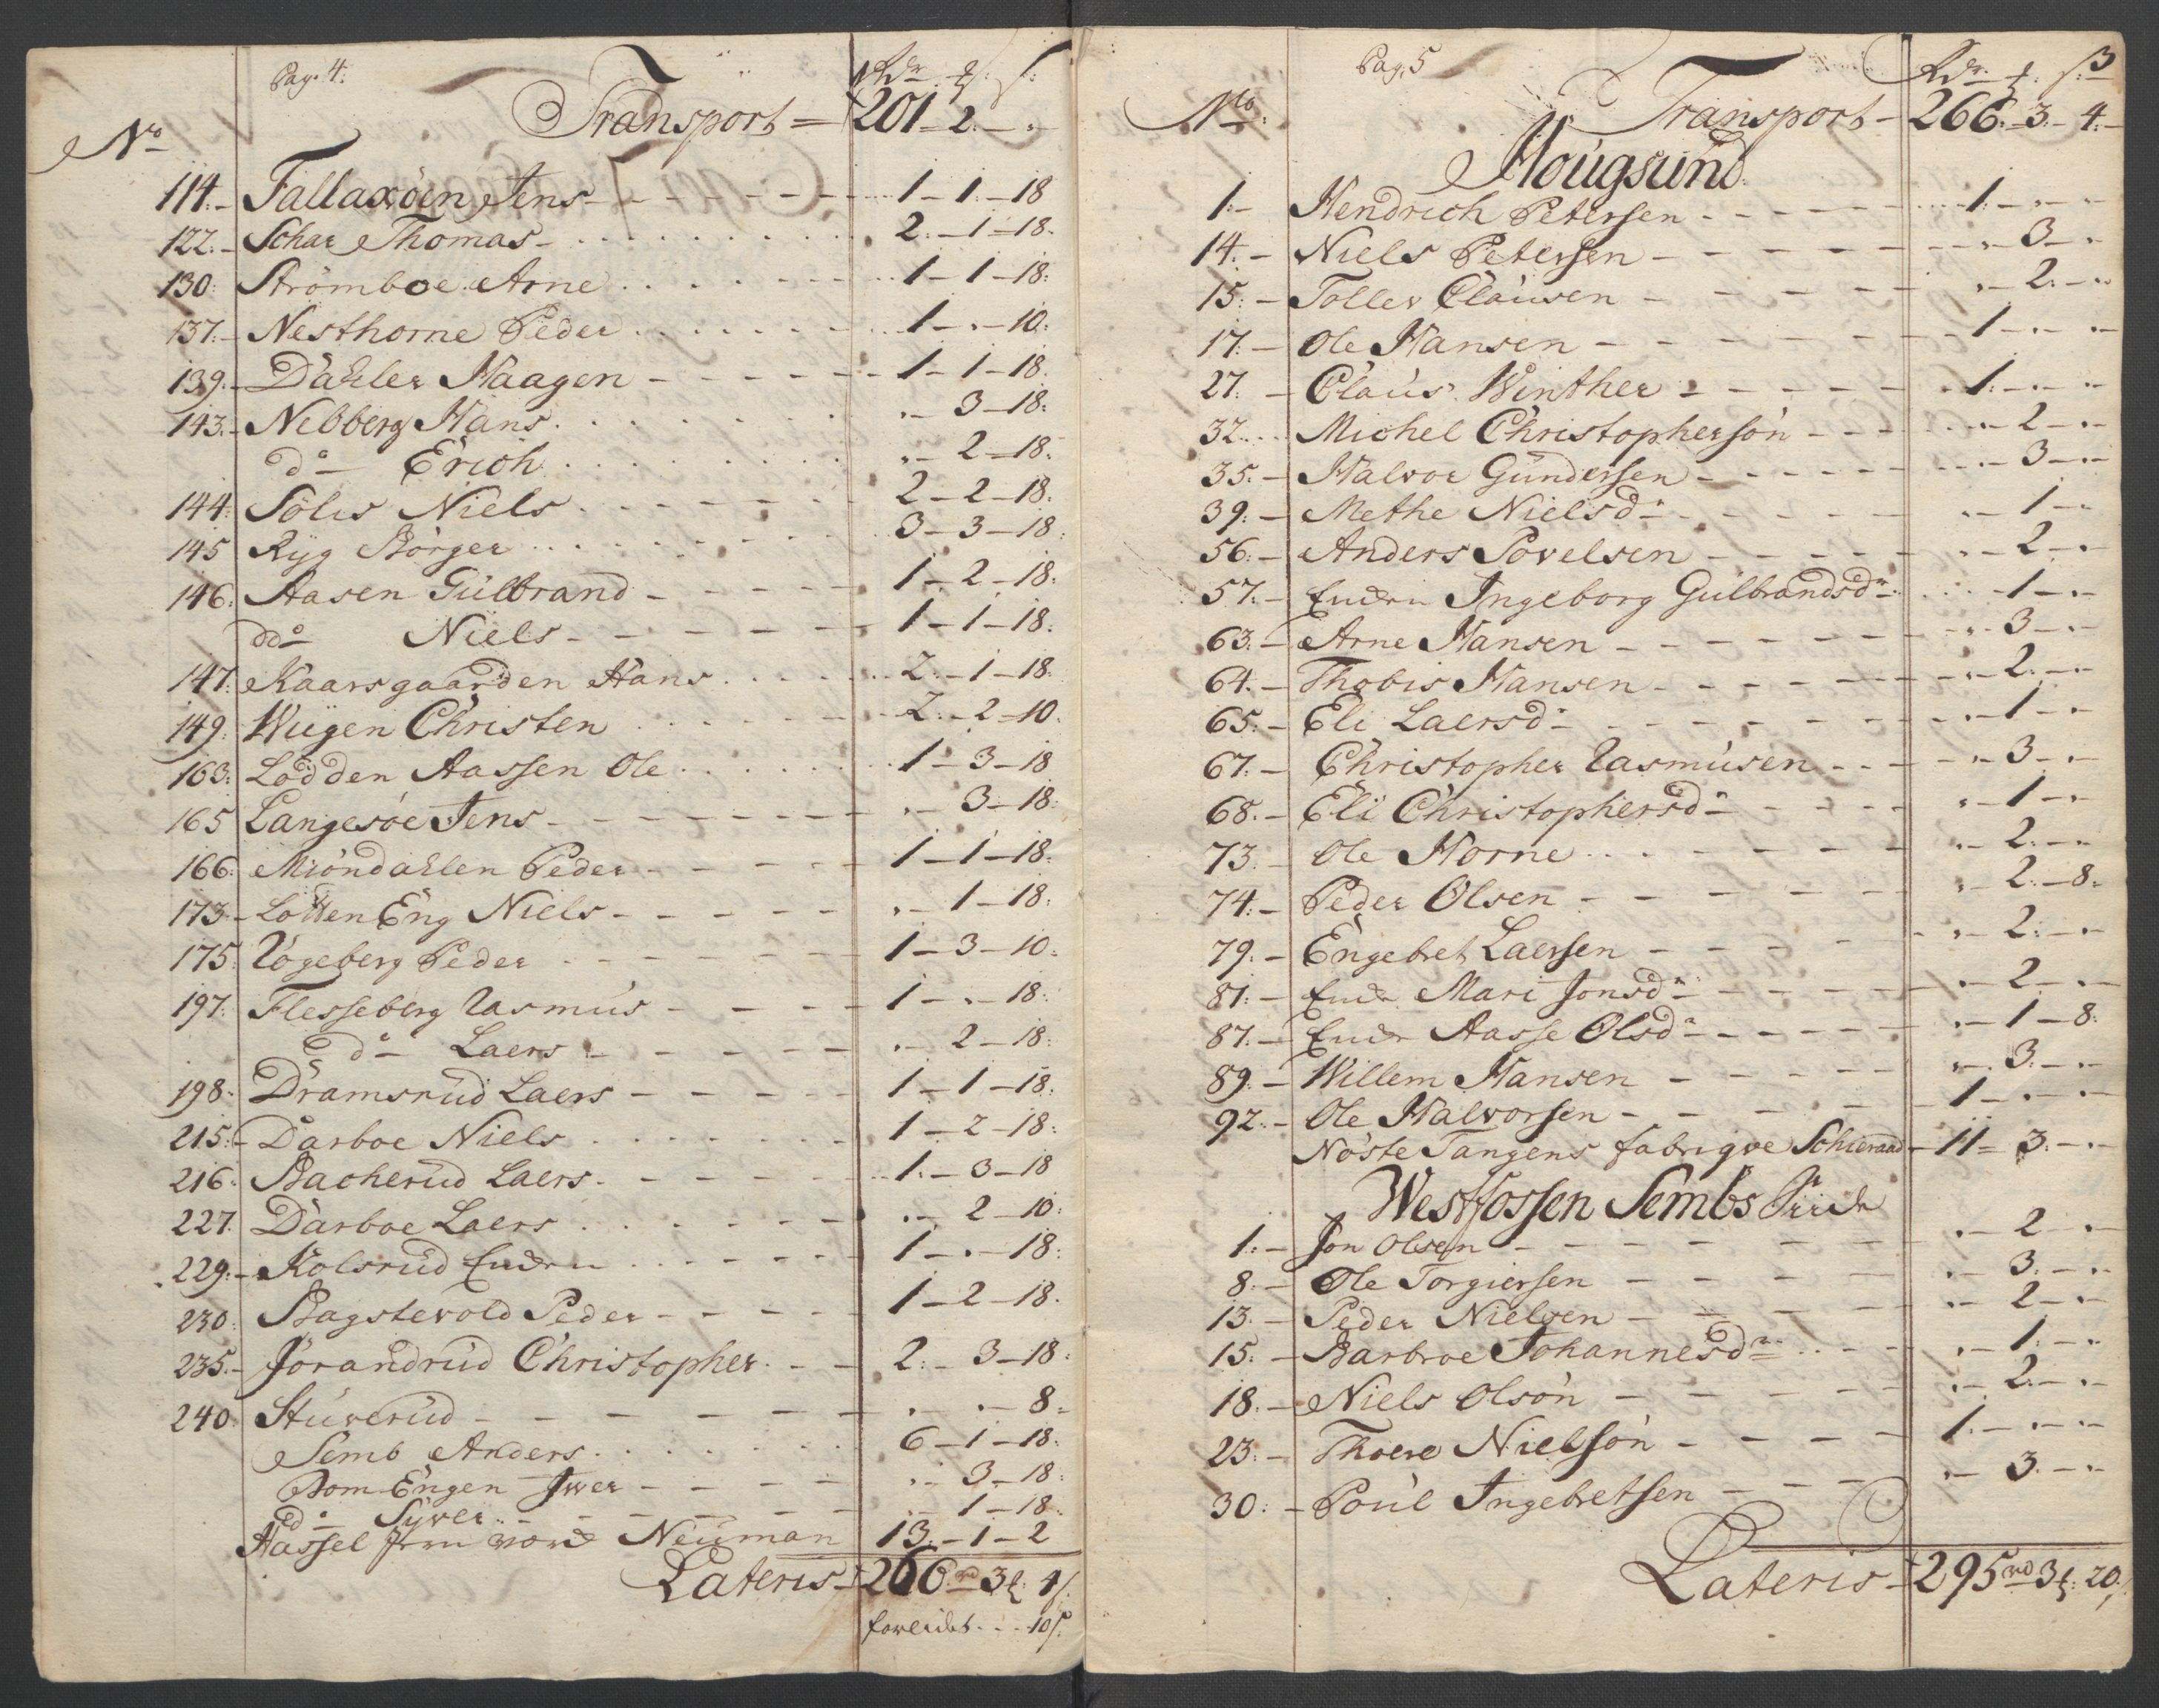 Pag. 4.
Rdr ₰: ſ:
Transport = 201 – 2. – .-
No
114. – Fallaxöen Jens – 1 – 1. – 18
122. – Schar Thomas – 2. – 1 – 18.
130: Strömboe Arne 1 – 1 – 18:
137. – Nesthorne Peder 1 – . – 10:
139. – Dahler Haagen – 1 – 1 – 18.
143. – Nebberg Hans . – 3 – 18:
do – Erich . – 2 – 18:
144: Sölis Niels 2 – 2 – 18.
145 Ryg Börger 3 – 3 – 18:
146. Aasen Gulbrand – 1 – 2 – 18:
ddo – Niels – 1 – 1 – 18:
147: Kaarsgaarden Hans 2. – 1 – 18:
149. Wiigen Christen 2. – 2 – 10.
163: Lodden Aassen Ole 1 – 3 – 18
165 Langesöe Jens – . – 3 – 18:
166: Miöndahlen Peder – 1 – 1 – 18:
173 – Lotten Eng Niels – . – 1 – 18.
175: Rögeberg Peder 1 – 3 – 10.
197: Flesseberg Rasmus – 1 – . – 18:
do – Laers – . – 2 – 18:
198. Dramsrud Laers – 1 – 1 – 18:
215: – Darboe Niels 1 – 2 – 18:
216. Bacherud Laers. 1. – 3 – 18
227. Darboe Laers . – 2 – 10:
229: – Kolsrud 1 – . – 18:
230: Bagstevold Peder – 1 – 2 – 18.
235. – Jorandrud Christopher. 2. – 3 – 18:
240: Stuverud – . – . – 8 –
Semb Anders 6 – 1 – 18:
Bom Engen Iwer – . – 3 – 18:
do – Syver . – 1 – 18.
Hassel Neuman 13. – 1 – 2
Lateris – 266 rd 3 ₰: 4 ſ.
10 ſ.
Pag. 5
3
Rdr. ₰: ſ:
No: Transport – 266. – 3. – 4. –
Hougsund.
1. – Hendrich Petersen – 1. – . – .
14. – Niels Petersen – . – 3 – .
15. – Toller Clausen – . – 2. – .
17. – Ole Hansen – 1 – . – .
27. – Claus Winther – 1. – . – .
32 Michel Christophersön – . – 2 – .
35. – Halvor Gundersen – . – 3 – .
39. – Methe Nielsdr – . – 1 – .
56. – Anders Povelsen – . – 2 – .
57. – Ingeborg Gulbrandsdr . – 1 – .
63. – Arne Hansen – . – 3 – .
64. – Thobis Hansen – . – 2. – .
65. – Eli Laersdr – . – 1 – .
67. – Christopher Rasmusen – . – 3 – .
68. – Eli Christophersdr – . – 1 – .
73. Ole Horne . – 2. – .
74. – Peder Olsen – . – 2. – 8.
79. – Engebret Laersen – . – 2. – .
81. – Mari Jonsdr – . – 2. – .
87. – Aasse Olsdr – . – 1 – 8.
89. – Willem Hansen – . – 3. – .
92. – Ole Halvorsen – 1 – . – .
Nöste Tangens fabriqve Schieraad – 11 – 3. – .
Westfossen Sembs
1. – Jon Olsen – . – 2 – .
8. – Ole Torgiersen – . – 3. – .
13. – Peder Nielsen – . – 2 – .
15. – Barbroe Johannesdr . – 1. – .
18. – Niels Olsön – . – 2. – .
23. – Thoere Nielsön – 1. – . – .
30: – Poul Ingebretsen – . – 3. – .
Lateris – 295 rd 3 ₰: 20 ſ.